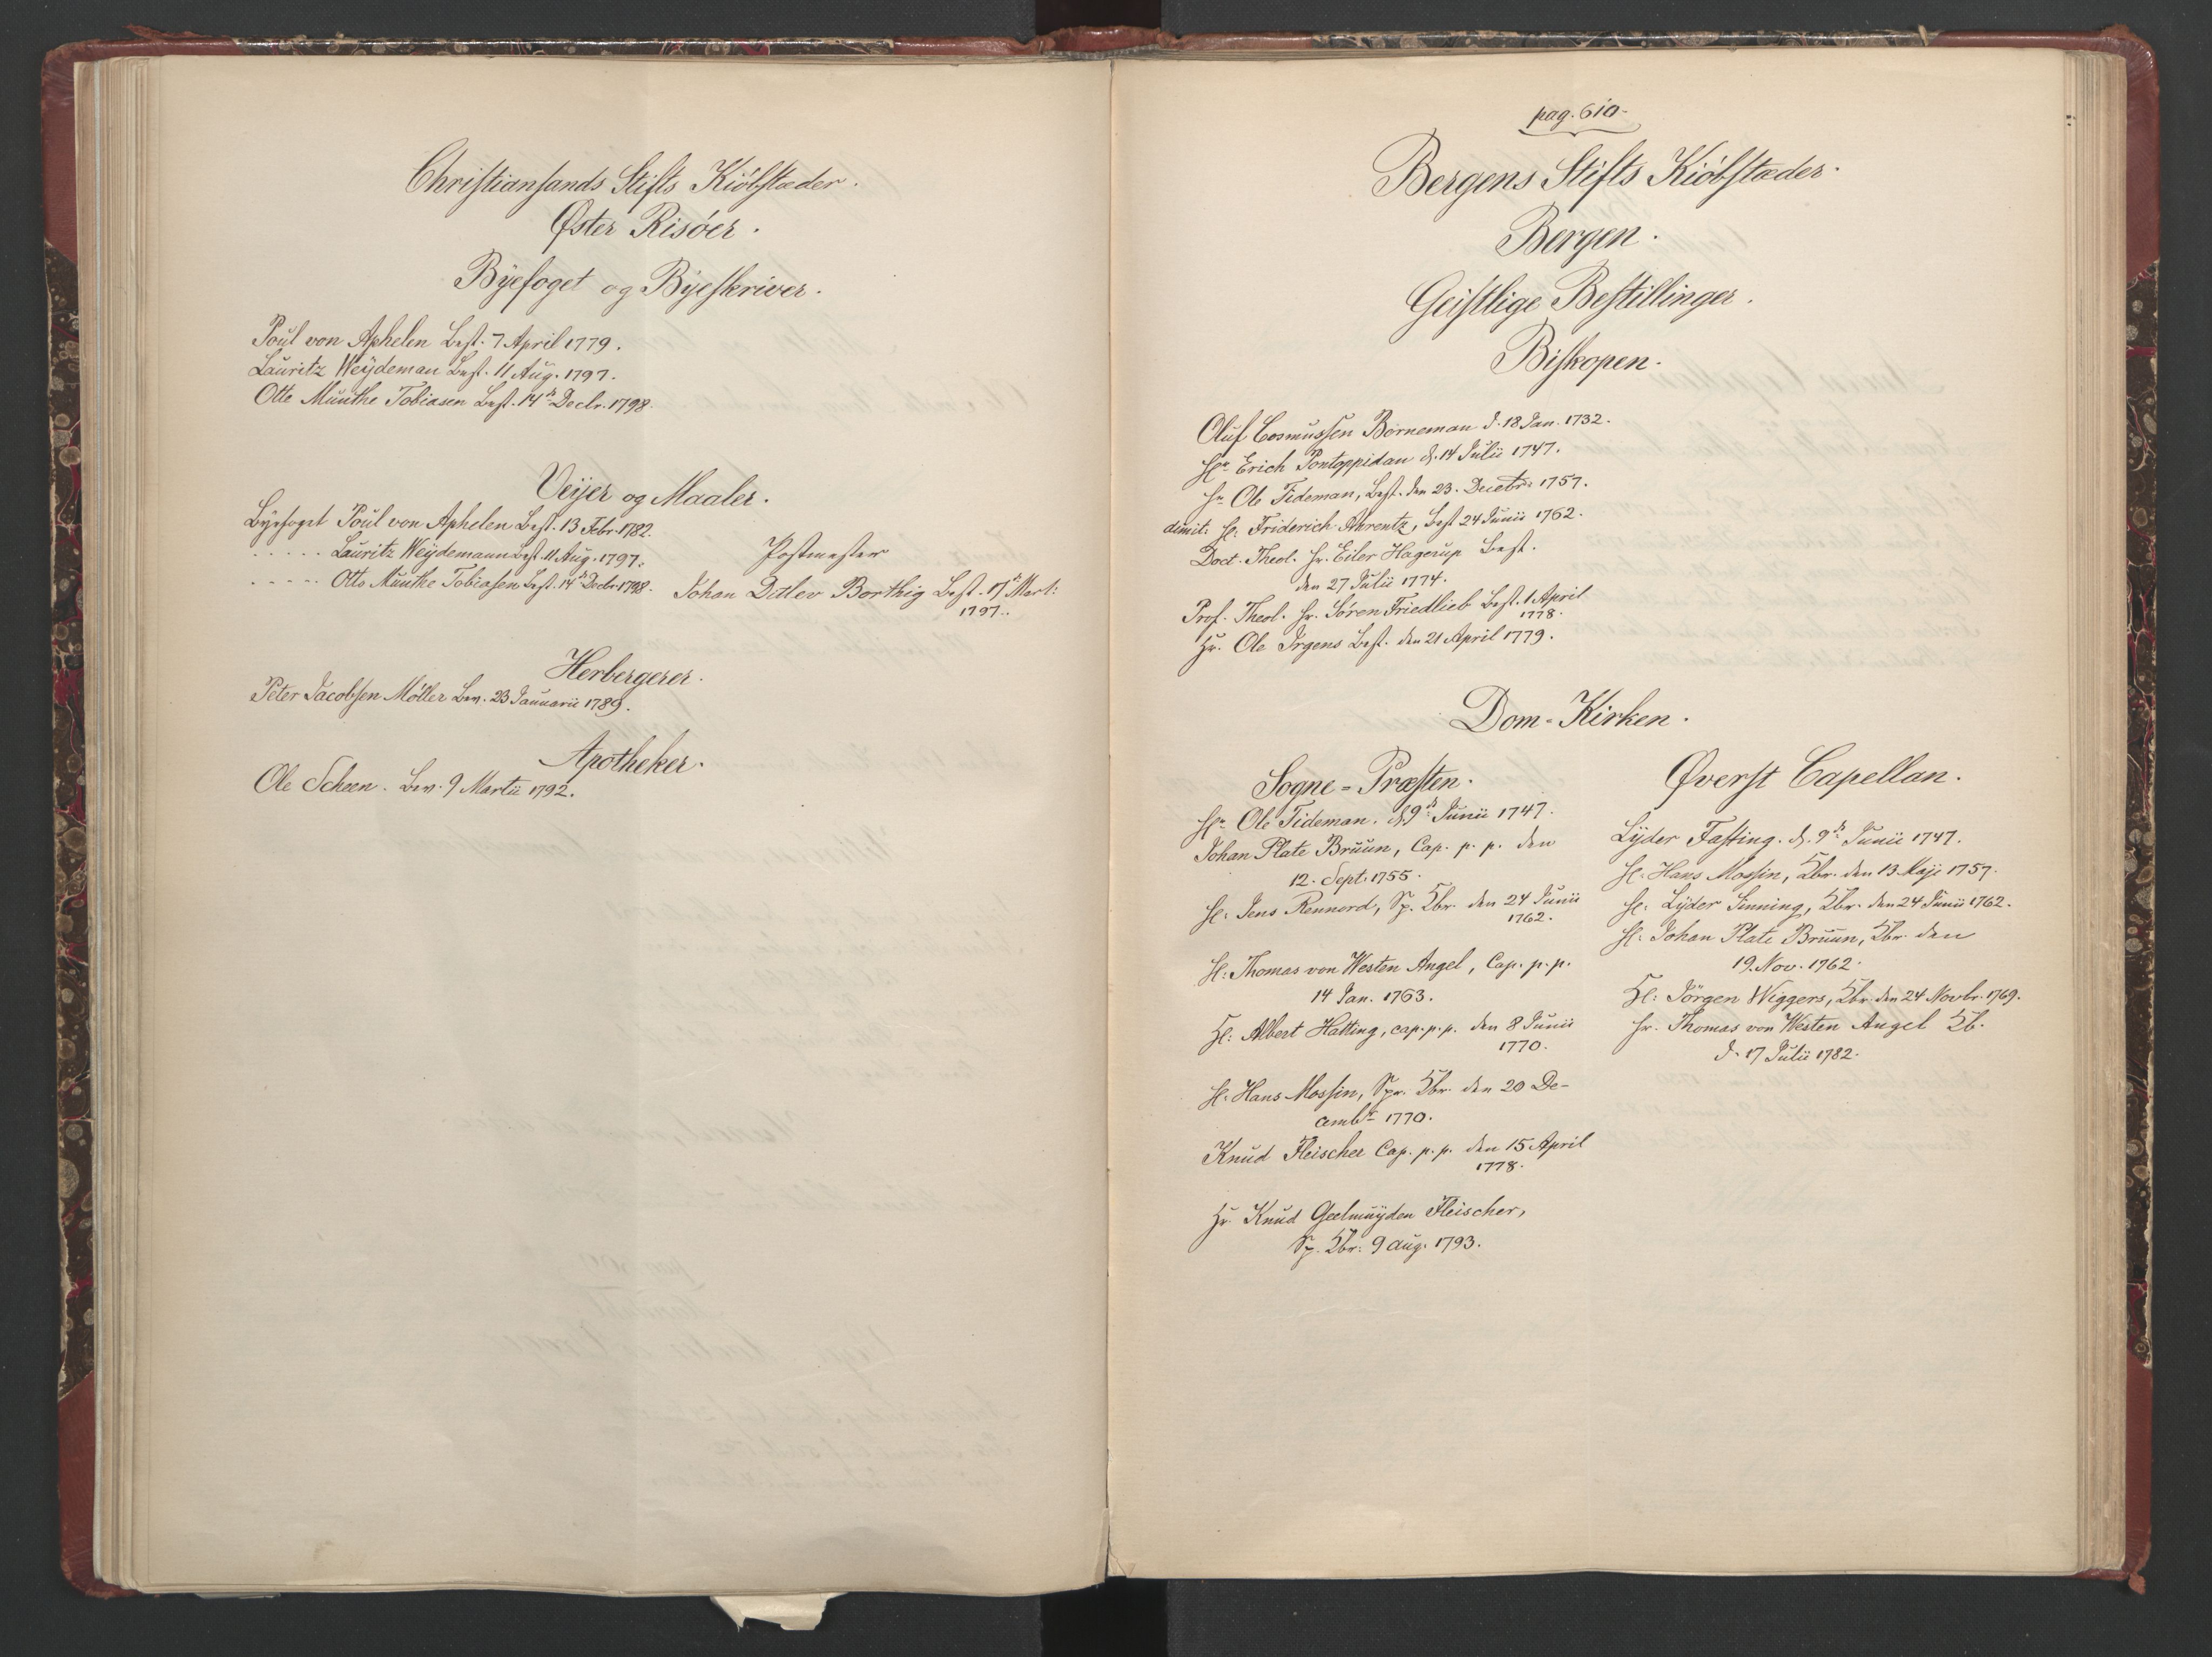 Christiansands Stifts Kiöbstæder.
Øster Risöer.
Byefoget og Byeskriver.
Poul von Aphelen Best. 7 April 1779.
Lauritz Weydeman Best. 11 Aug. 1797.
Otto Munthe Tobiasen Best. 14de Decbr. 1798.
Veyer og Maaler.
Byefoget Poul von Aphelen Best. 13 Febr. 1782.
..... Lauritz Weydemann Best. 11. Aug. 1797.
..... Otto Munthe Tobiasen Best. 14de Decbr. 1798.
Postmester
Johan Ditlev Borthig Best. 17de Mart:
1797.
Herbergerer.
Peter Jacobsen Möller Bev. 23 Januarii 1789.
Apotheker.
Ole Scheen. Bev. 9 Martii 1792.
pag. 610.
Bergens Stifts Kiöbstæder.
Bergen.
Geistlige Bestillinger.
Biskopen.
Oluf Cosmussen Borneman d. 18 Jan. 1732.
Hr. Erich Pontoppidan d. 14 Julii 1747.
Hr. Ole Tideman, Best. den 23. Decebr. 1757.
dimit: Hr: Friderich Ahrentz, Best 24 Junii 1762.
Doct. Theol. Hr. Eiler Hagerup Best.
den 27 Julii 1774.
Prof. Theol. Hr. Sören Friedlieb Best. 1 April
1778.
Hr. Ole Irgens Best. den 21 April 1779.
Dom-Kirken.
Sogne-Præsten.
Hr. Ole Tideman. d. 9de Junii 1747.
Johan Plate Bruun, Cap. p. p. den
12. Sept. 1755.
Hr: Jens Rennord, Sp. Kbr. den 24 Junii
1762.
Hr: Thomas von Westen Angel, Cap. p. p.
14 Jan. 1763.
Hr: Albert Hatting, cap. p. p. den 8 Junii
1770.
Hr. Hans Mossin, Spr. Kbr. den 20 De-
cembr 1770.
Knud Fleischer Cap. p. p. den 15 April
1778.
Hr. Knud Geelmuyden Fleischer,
Sp. Kbr: 9 aug. 1793.
Øverst Capellan.
Lyder Fasting. d. 9de Junii 1747.
Hr. Hans Mossin, Kbr. den 13 Maji 1757.
Hr: Lyder Finning, Kbr. den 24 Junii 1762.
Hr: Johan Plate Bruun, Kbr. den
19. Nov. 1762.
Hr: Jörgen Wiggers, Kbr. den 24 Novbr. 1769.
Hr. Thomas von Westen Angel Kb.
d. 17 Julii 1782.